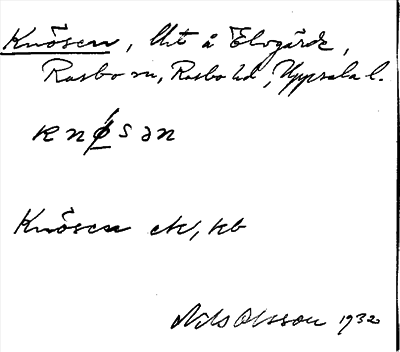 Knösen, Ut å Elvgärde,
Rasbo sn, Rasbo hd, Uppsala l.
knǿsən
Knösen ek, kb
Nils Olsson 1932